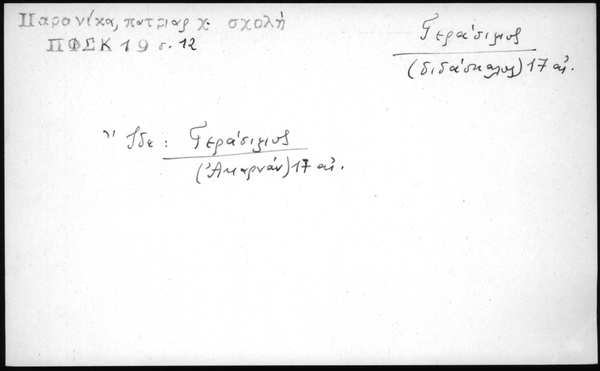 Παρανίκα, πατριαρχ. σχολή
ΠΦΣΚ 19 σ. 12
Γεράσιμος
(διδάσκαλος) 17 αἰ.
Ἴδε: Γεράσιμος
(Ἀκαρνάν) 17 αἰ.